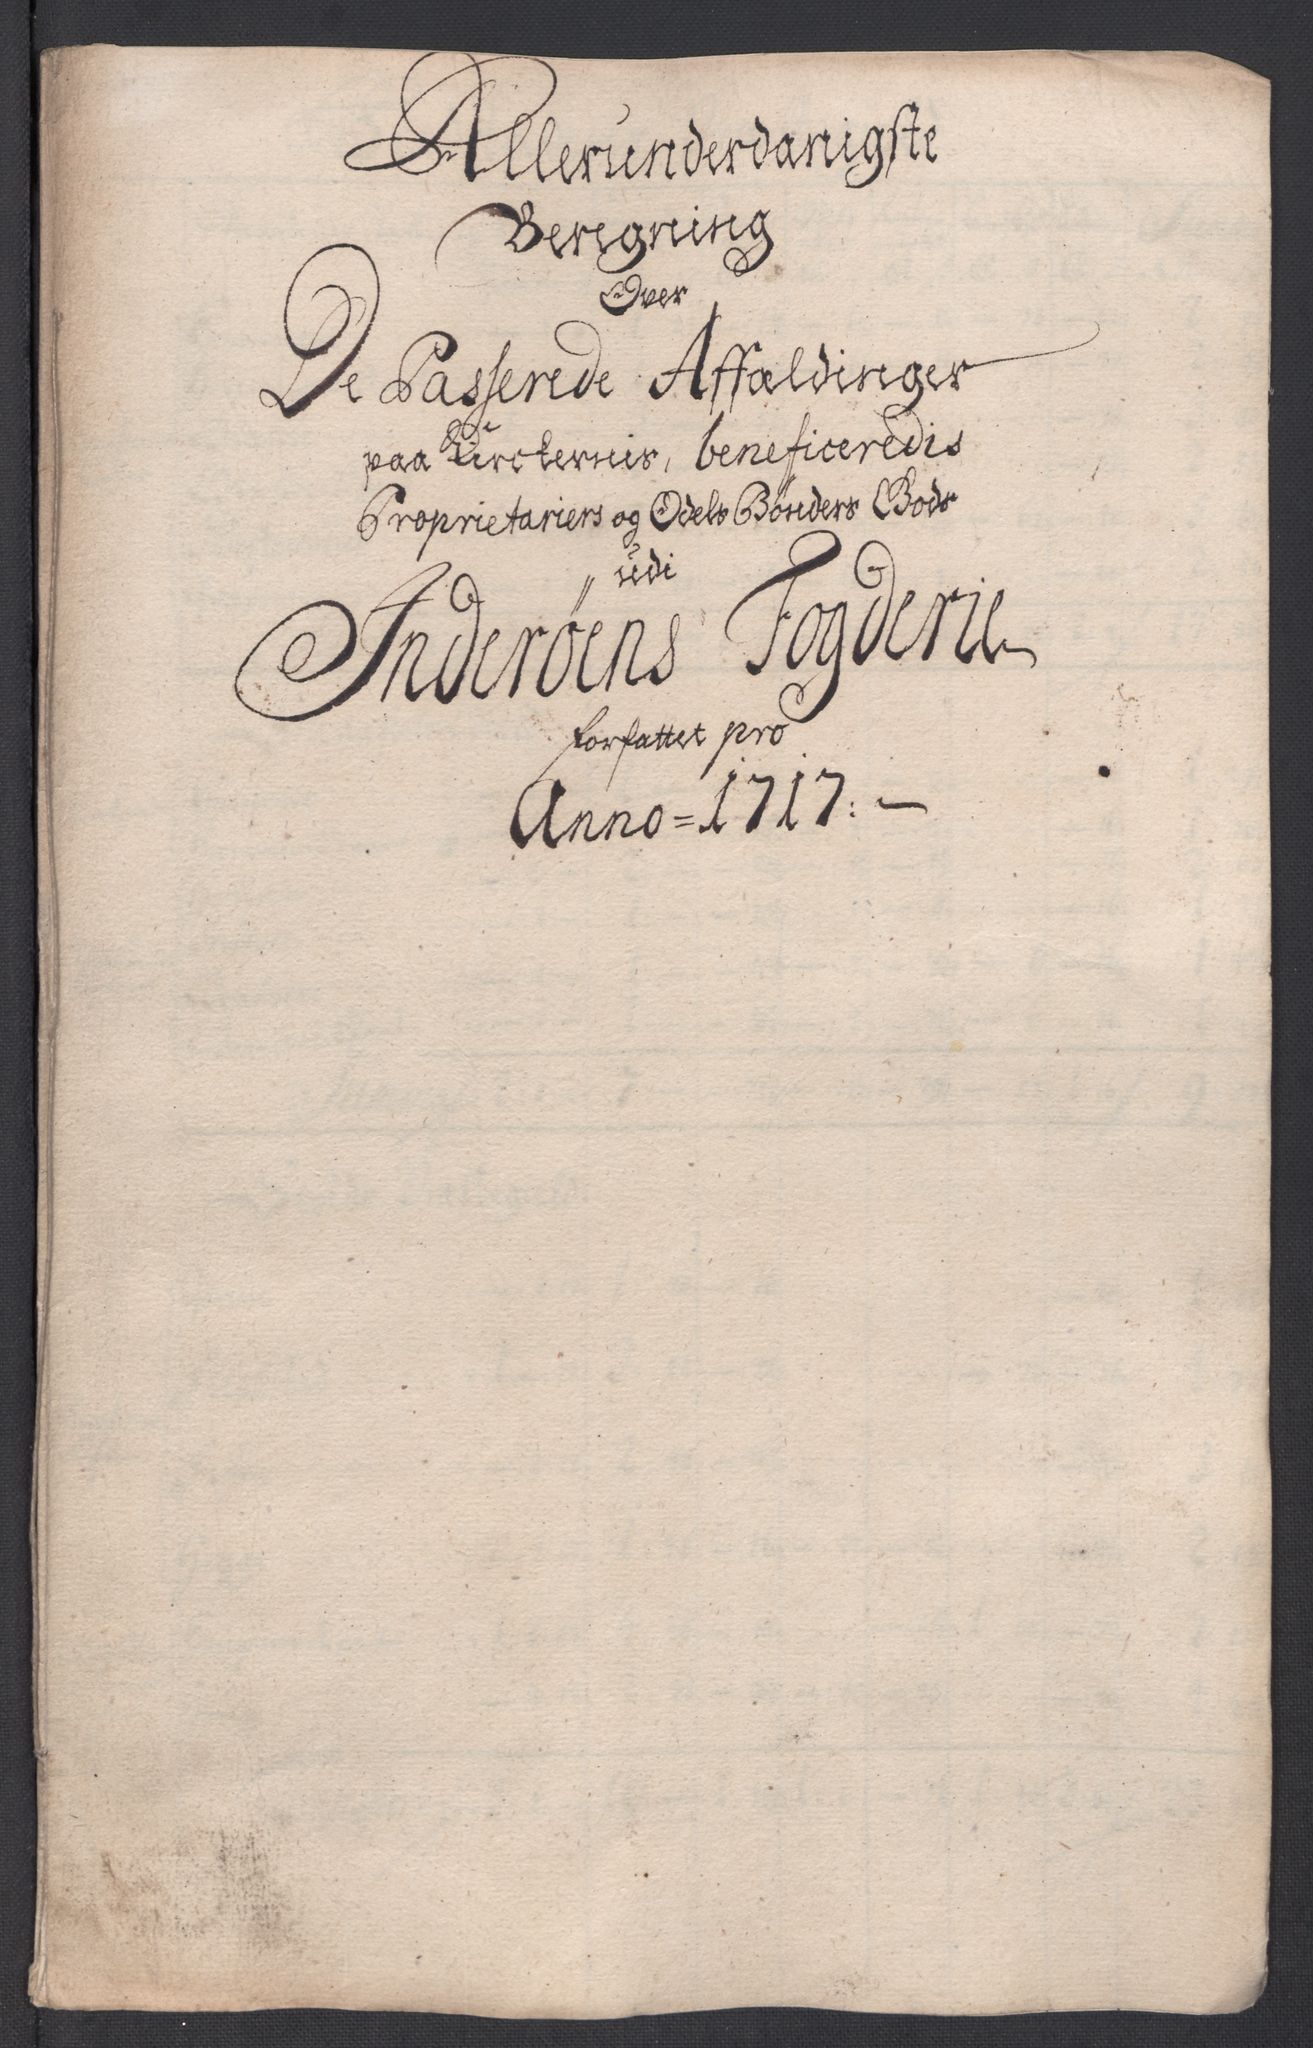 Allerunderdanigste
Beregning
Over
De Passerede Affældinger
paa Kirckernis, beneficeredis
Proprietariers og Odels Bønders Gods
udi
Inderøens Fogderie
forfattet pro
Anno = 1717: —